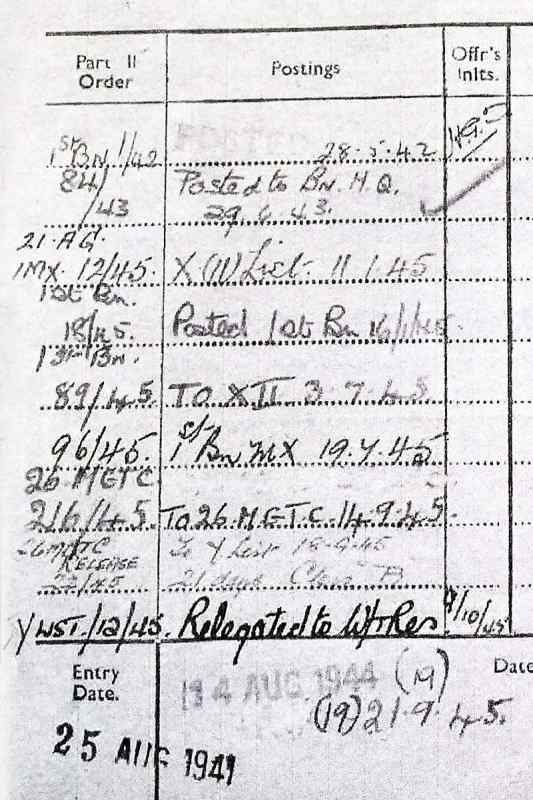 Part II Order
Postings
Offr's Inlts.
1st Bn 1/42
28-5-42
84/
Posted to Bn. H.Q.
/43
29.6.43.
21.AG.
1MX. 12/45. X(ii) List. 11.1.45
1st Bn.
18/45. Posted 1st Bn 16/1/45.
1st Bn.
89/45 To XII 3.7.45
96/45. 1st Bn MX 19.7.45
26 METC
216/45 To 26 METC 14.9.45.
26 METC To Y List 18-9-45
RELEASE
22/45 21 days Class A
Y LIST./12/45. Relegated to W/T Res /10/45
Entry Date.
14 AUG 1944 (19)
Date
(19) 21.9.45.
25 AUG 1941